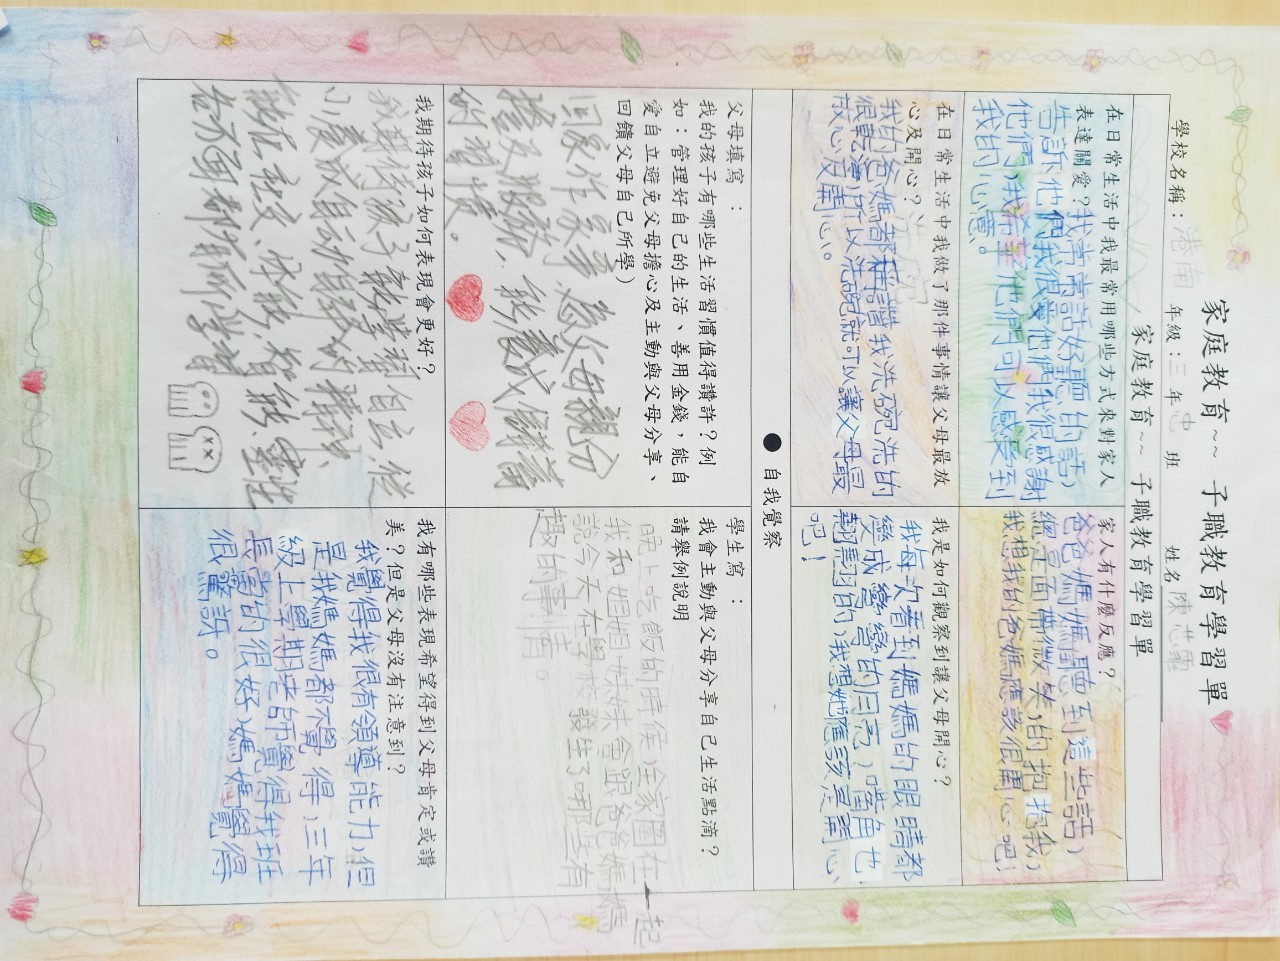 家庭教育~~ 子職教育學習單
家庭教育~~ 子職教育學習單
學校名稱：港南 年級：三年忠班 姓名陳
在日常生活中我最常用哪些方式來對家人
表達關愛？我常常說好聽的話，
告訴他們我很愛他們，我很感謝
他們，我希望他們可以感受到
我的心意。
家人有什麼反應？
爸爸媽媽聽到這些話，
總是面帶微笑的抱抱我，
我想我的爸媽應該很開心吧！
在日常生活中我做了那件事情讓父母最放
心及開心？
我的爸媽都稱讚我洗碗洗的
很乾淨，所以洗碗就可以讓父母最
放心及開心。
我是如何觀察到讓父母開心？
我每次看到媽媽的眼睛都
變成彎彎的月亮，嘴角也
翹翹的，我想她應該是開心
吧！
● 自我覺察
父母填寫：
我的孩子有哪些生活習慣值得讚許？例
如：管理好自己的生活、善用金錢，能自
愛自立避免父母擔心及主動與父母分享、
回饋父母自己所學）
回家作家事，為父母親分
擔及服務，能養成儲蓄
的習慣。
學生寫：
我會主動與父母分享自己生活點滴？
請舉例說明
晚上吃飯的時候，全家圍在一起
我和姐姐妹妹會跟爸爸媽媽
說今天在學校發生了哪些有
趣的事情。
我期待孩子如何表現會更好？
我期待孩子能掌握自己，從
小養成自動自發的精神、
能在社交、体能、智能、靈性
各方面都有所學習
我有哪些表現希望得到父母肯定或讚
美？但是父母沒有注意到？
我覺得我很有領導能力，但
是我媽媽都不覺得，三年
級上學期老師覺得我班
長當的很好，媽媽覺得
很驚訝。